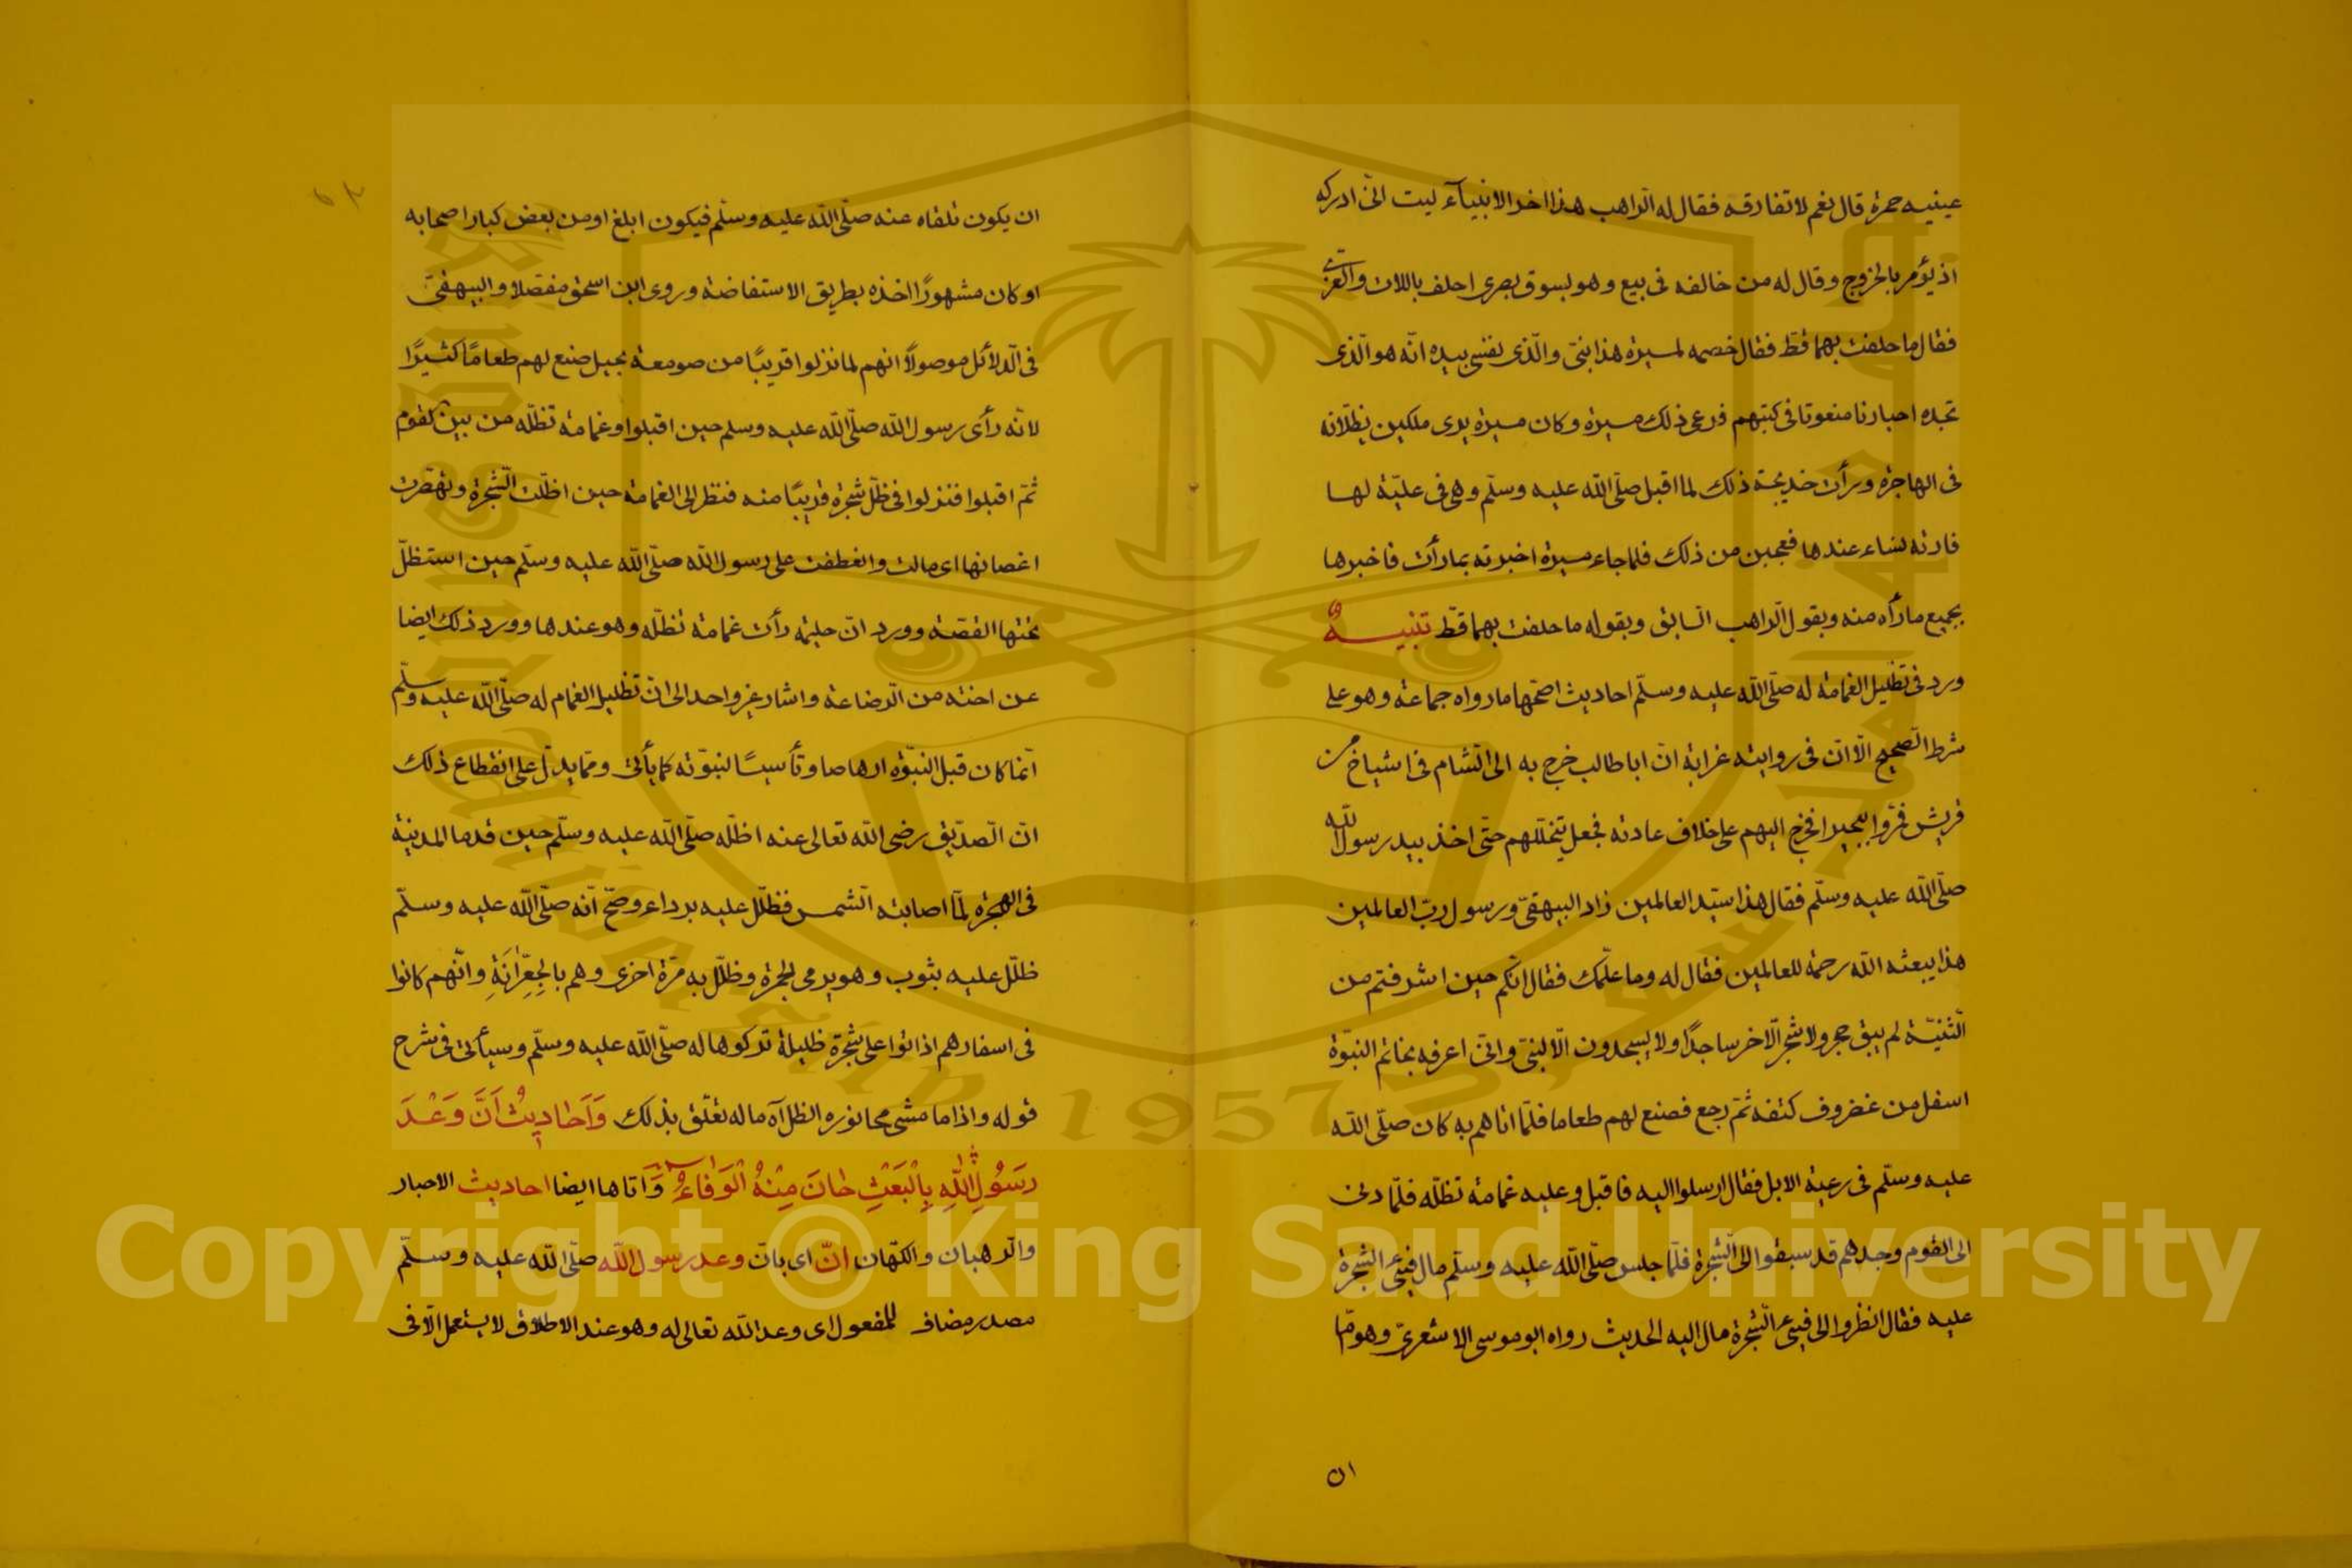 عينيه حمرة قال نعم لا تفارقه فقال له الراهب هذا اخر الانبياء ليت انى ادركه
اذ يؤمر بالخروج وقال له من خالفه فى بيع وهو بسوق بصرى احلف باللات والعزى
فقال ما حلفت بهما قط فقال خصمه لميسرة هذا نبىّ والّذى نفسى بيده انّه هو الّذى
تجده احبارنا منعوتا فى كتبهم فوعى ذلك ميسرة وكان ميسرة يرى ملكين يظلّانه
فى الهاجرة ورأت خديجة ذلك لما اقبل صلّى اللّه عليه وسلّم وهى فى عليّة لها
فارته نساء عندها فعجبن من ذلك فلما جاء ميسرة اخبرته بما رأت فاخبرها
بجميع ما رأه منه وبقول الرّاهب السّابق وبقوله ما حلفت بهما قطّ تنبيهٌ
ورد فى تظليل الغمامة له صلّى اللّه عليه وسلّم احاديث اصحّها ما رواه جماعة وهو على
شرط الصّحيح الّا انّ فى روايته غرابة انّ ابا طالب خرج به الى الشّام فى اشياخ من
قريش فمرّوا ببحيرا فخرج اليهم على خلاف عادته فجعل يتخللهم حتّى اخذ بيد رسول اللّه
صلّى اللّه عليه وسلّم فقال هذا سيّد العالمين زاد البيهقىّ ورسول ربّ العالمين
هذا يبعثه اللّه رحمة للعالمين فقال له وما علّمك فقال انّكم حين اشرفتم من
الثّنيّة لم يبق حجر ولا شجر الّا خر ساجدًا ولا يسجدون الّا لنبىّ وانّى اعرفه بخاتم النبوّة
اسفل من غضروف كتفه ثمّ رجع فصنع لهم طعاما فلمّا اتاهم به كان صلّى اللّه
عليه وسلّم فى رعية الابل فقال ارسلوا اليه فاقبل وعليه غمامة تظلّه فلمّا دنى
الى القوم وجدهم قد سبقوا الى الشّجرة فلمّا جلس صلّى اللّه عليه وسلّم مال فىء الشّجرة
عليه فقال انظروا الى فىء الشّجرة مال اليه الحديث رواه ابو موسى الاشعرىّ وهو امّا
٥١
ان يكون تلقاه عنه صلّى اللّه عليه وسلّم فيكون ابلغ او من بعض كبار اصحابه
او كان مشهورًا اخذه بطريق الاستفاضة وروى ابن اسحق مفصّلا والبيهقىّ
فى الدّلائل موصولًا انهم لما نزلوا قريبًا من صومعة بحيرا صنع لهم طعامًا كثيرًا
لانّه رأى رسول اللّه صلّى اللّه عليه وسلم حين اقبلوا وغمامة تظلّه من بين القوم
ثمّ اقبلوا فنزلوا فى ظلّ شجرة قريبًا منه فنظر الى الغمامة حين اظلّت الشّجرة وتهصّرت
اغصانها اى مالت وانعطفت على رسول اللّه صلّى اللّه عليه وسلّم حين استظلّ
تحتها القصّة وورد انّ حليمة رأت غمامة تظلّه وهو عندها وورد ذلك ايضا
عن اخته من الرّضاعة واشار غير واحد الى انّ تظليل الغمام له صلّى اللّه عليه وسلّم
انّما كان قبل النبّوة ارهاصا وتأسيسًا لنبوّته كما يأتى وممّا يدلّ على انقطاع ذلك
انّ الصّدّيق رضى اللّه تعالى عنه اظلّه صلّى اللّه عليه وسلّم حين قدما المدينة
فى الهجرة لمّا اصابته الشّمس فظلّل عليه برداء وصحّ انّه صلّى اللّه عليه وسلّم
ظلّل عليه بثوب وهو يرمى الجمرة وظلّل به مرّة اخرى وهم بالجِعِرّانَةِ وانّهم كانوا
فى اسفارهم اذا اتوا على شجرة ظليلة تركوها له صلّى اللّه عليه وسلّم وسيأتى فى شرح
قوله واذا ما مشى محا نوره الظل آه ما له تعلّق بذلك وَاَحَادِيثُ اَنَّ وَعْدَ
رَسُولِ اللّٰهِ بِالْبَعْثِ حَانَ مِنْهُ الْوَفَاءُ وَاَتاها ايضا احاديث الاحبار
والرّهبان والكهّان انّ اى بانّ وعد رسول اللّه صلّى اللّه عليه وسلّم
مصدر مضاف للمفعول اى وعد اللّه تعالى له وهو عند الاطلاق لا يستعمل الّا فى
Copyright © King Saud University
King Saud University
1957